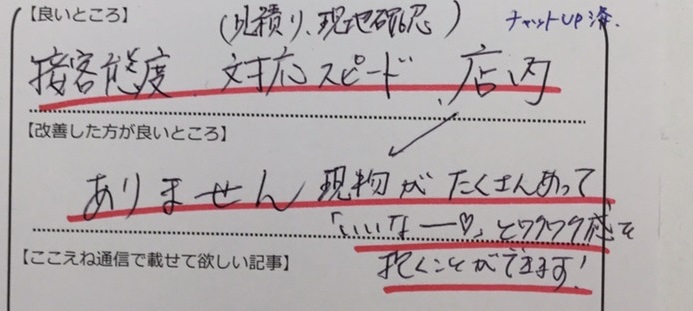 【良いところ】
(見積り、現地確認)
チャットUP済.
接客態度、対応スピード、店内
【改善した方が良いところ】
ありません 現物がたくさんあって
「いいなー♡」とワクワク感を
抱くことができます!
【ここえね通信で載せて欲しい記事】